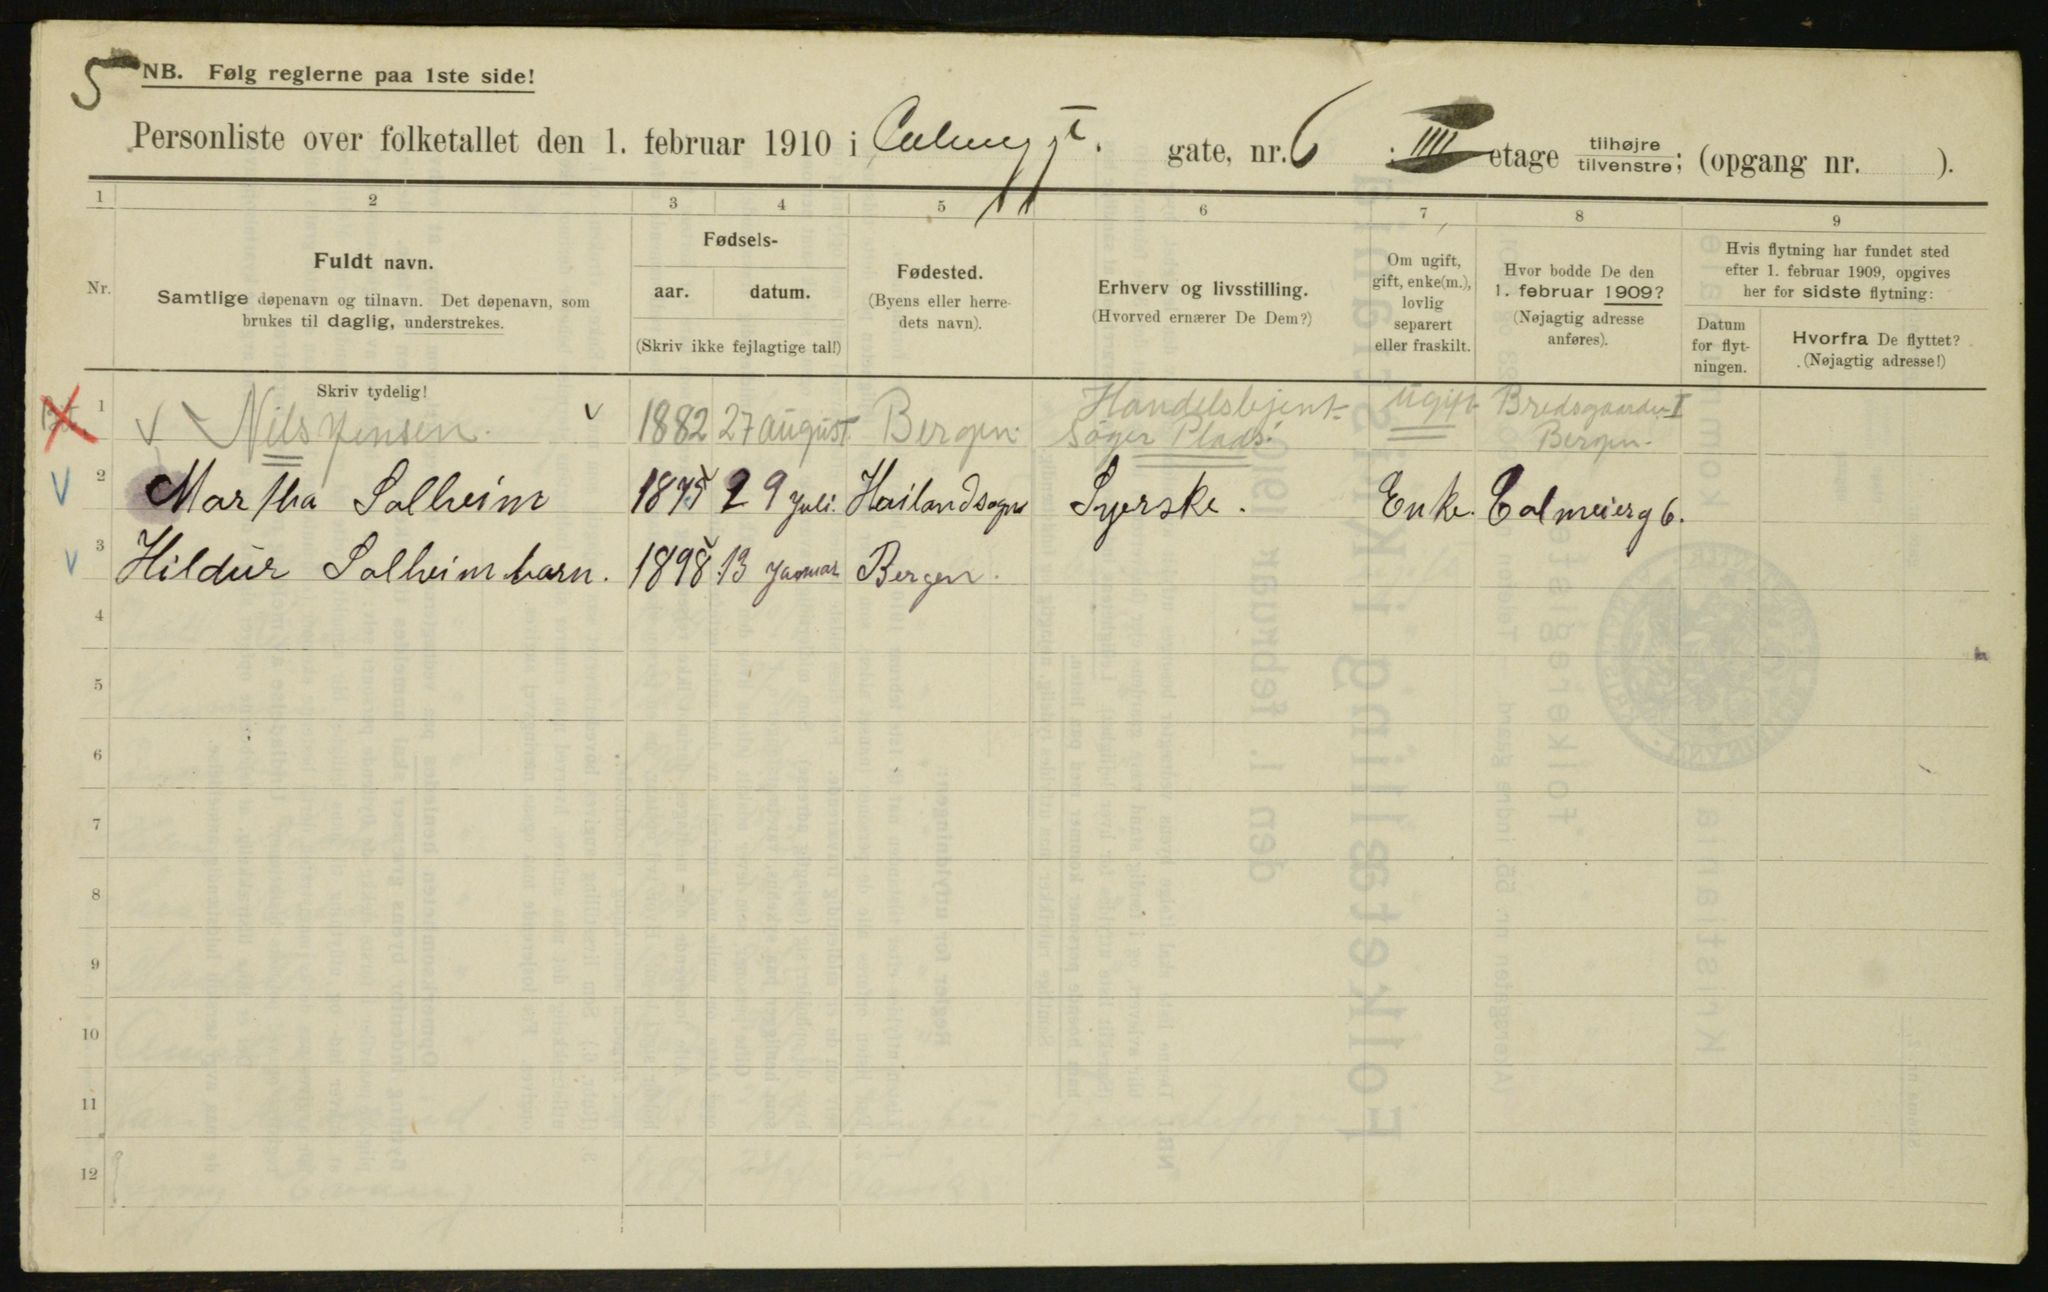 5
NB. Følg reglerne paa 1ste side!
Personliste over folketallet den 1. februar 1910 i gate, nr. 6 etage tilhøjre tilvenstre; (opgang nr. ).
1 2 3 4 5 6 7 8 9
Nr.
Fuldt navn.
Samtlige døpenavn og tilnavn. Det døpenavn, som
brukes til daglig, understrekes.
Skriv tydelig!
Fødsels-
aar. datum.
(Skriv ikke fejlagtige tal!)
Fødested.
(Byens eller herre-
dets navn).
Erhverv og livsstilling.
(Hvorved ernærer De Dem?)
Om ugift,
gift, enke(m.),
lovlig
separert
eller fraskilt.
Hvor bodde De den
1. februar 1909?
(Nøjagtig adresse
anføres).
Hvis flytning har fundet sted
efter 1. februar 1909, opgives
her for sidste flytning:
Datum
for flyt-
ningen.
Hvorfra De flyttet?
(Nøjagtig adresse!)
1 Nils Jensen. 1882 27 august Bergen. Handelsbjent Søger Plads. Ugift Bredsgaarden I Bergen.
2 Martha Solheim 1875 29 Juli. Syerske. Enke. Colmeierg 6.
3 Hildur Solheim barn. 1898 13 Januar Bergen.
4
5
6
7
8
9
10
11
12